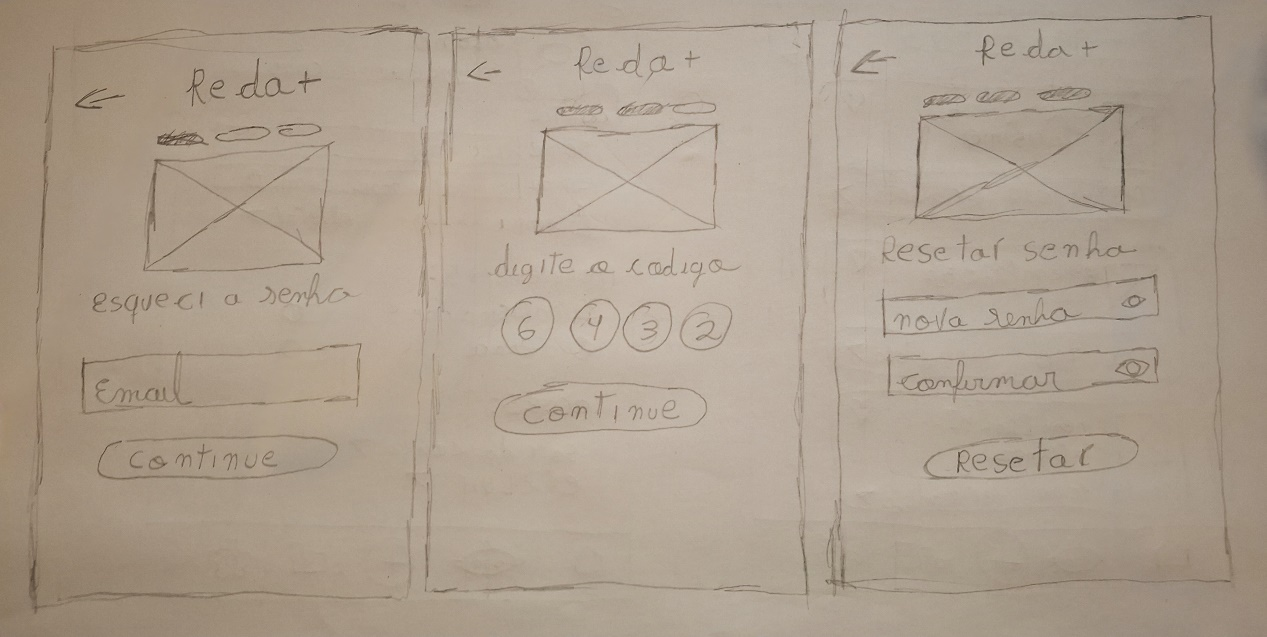 Reda+
esqueci a senha
Email
Continue
Reda+
digite o codigo
6 4 3 2
Continue
Reda+
Resetar senha
nova senha
Confirmar
Resetar